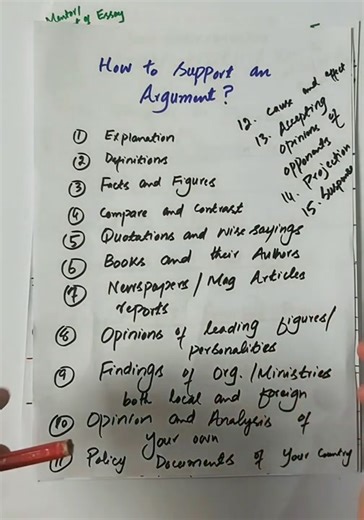 of Essay
How to support an
Argument?
① Explanation
② Definitions
③ Facts and Figures
④ Compare and Contrast
⑤ Quotations and wise sayings
⑥ Books and their Authors
⑦ Newspapers/Mag Articles
reports
⑧ Opinions of leading figures/
personalities
⑨ Findings of Org./Ministries
both local and foreign
⑩ Opinion and Analysis of
your own
⑪ Policy Documents of your Country
12. cause and effect
13. Accepting
opinions of
opponents
14. Projection
15.